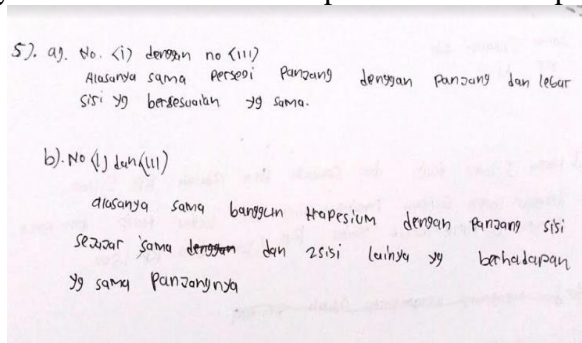 5). a). No. (i) dengan no (III)
Alasanya sama persegi panjang denggan panjang dan lebar
sisi yg bersesuaian yg sama.
b). No (I) dan (III)
alasanya sama banggun trapesium denggan panjang sisi
sejajar sama denggan dan 2 sisi lainya yg berhadapan
yg sama panjangnya